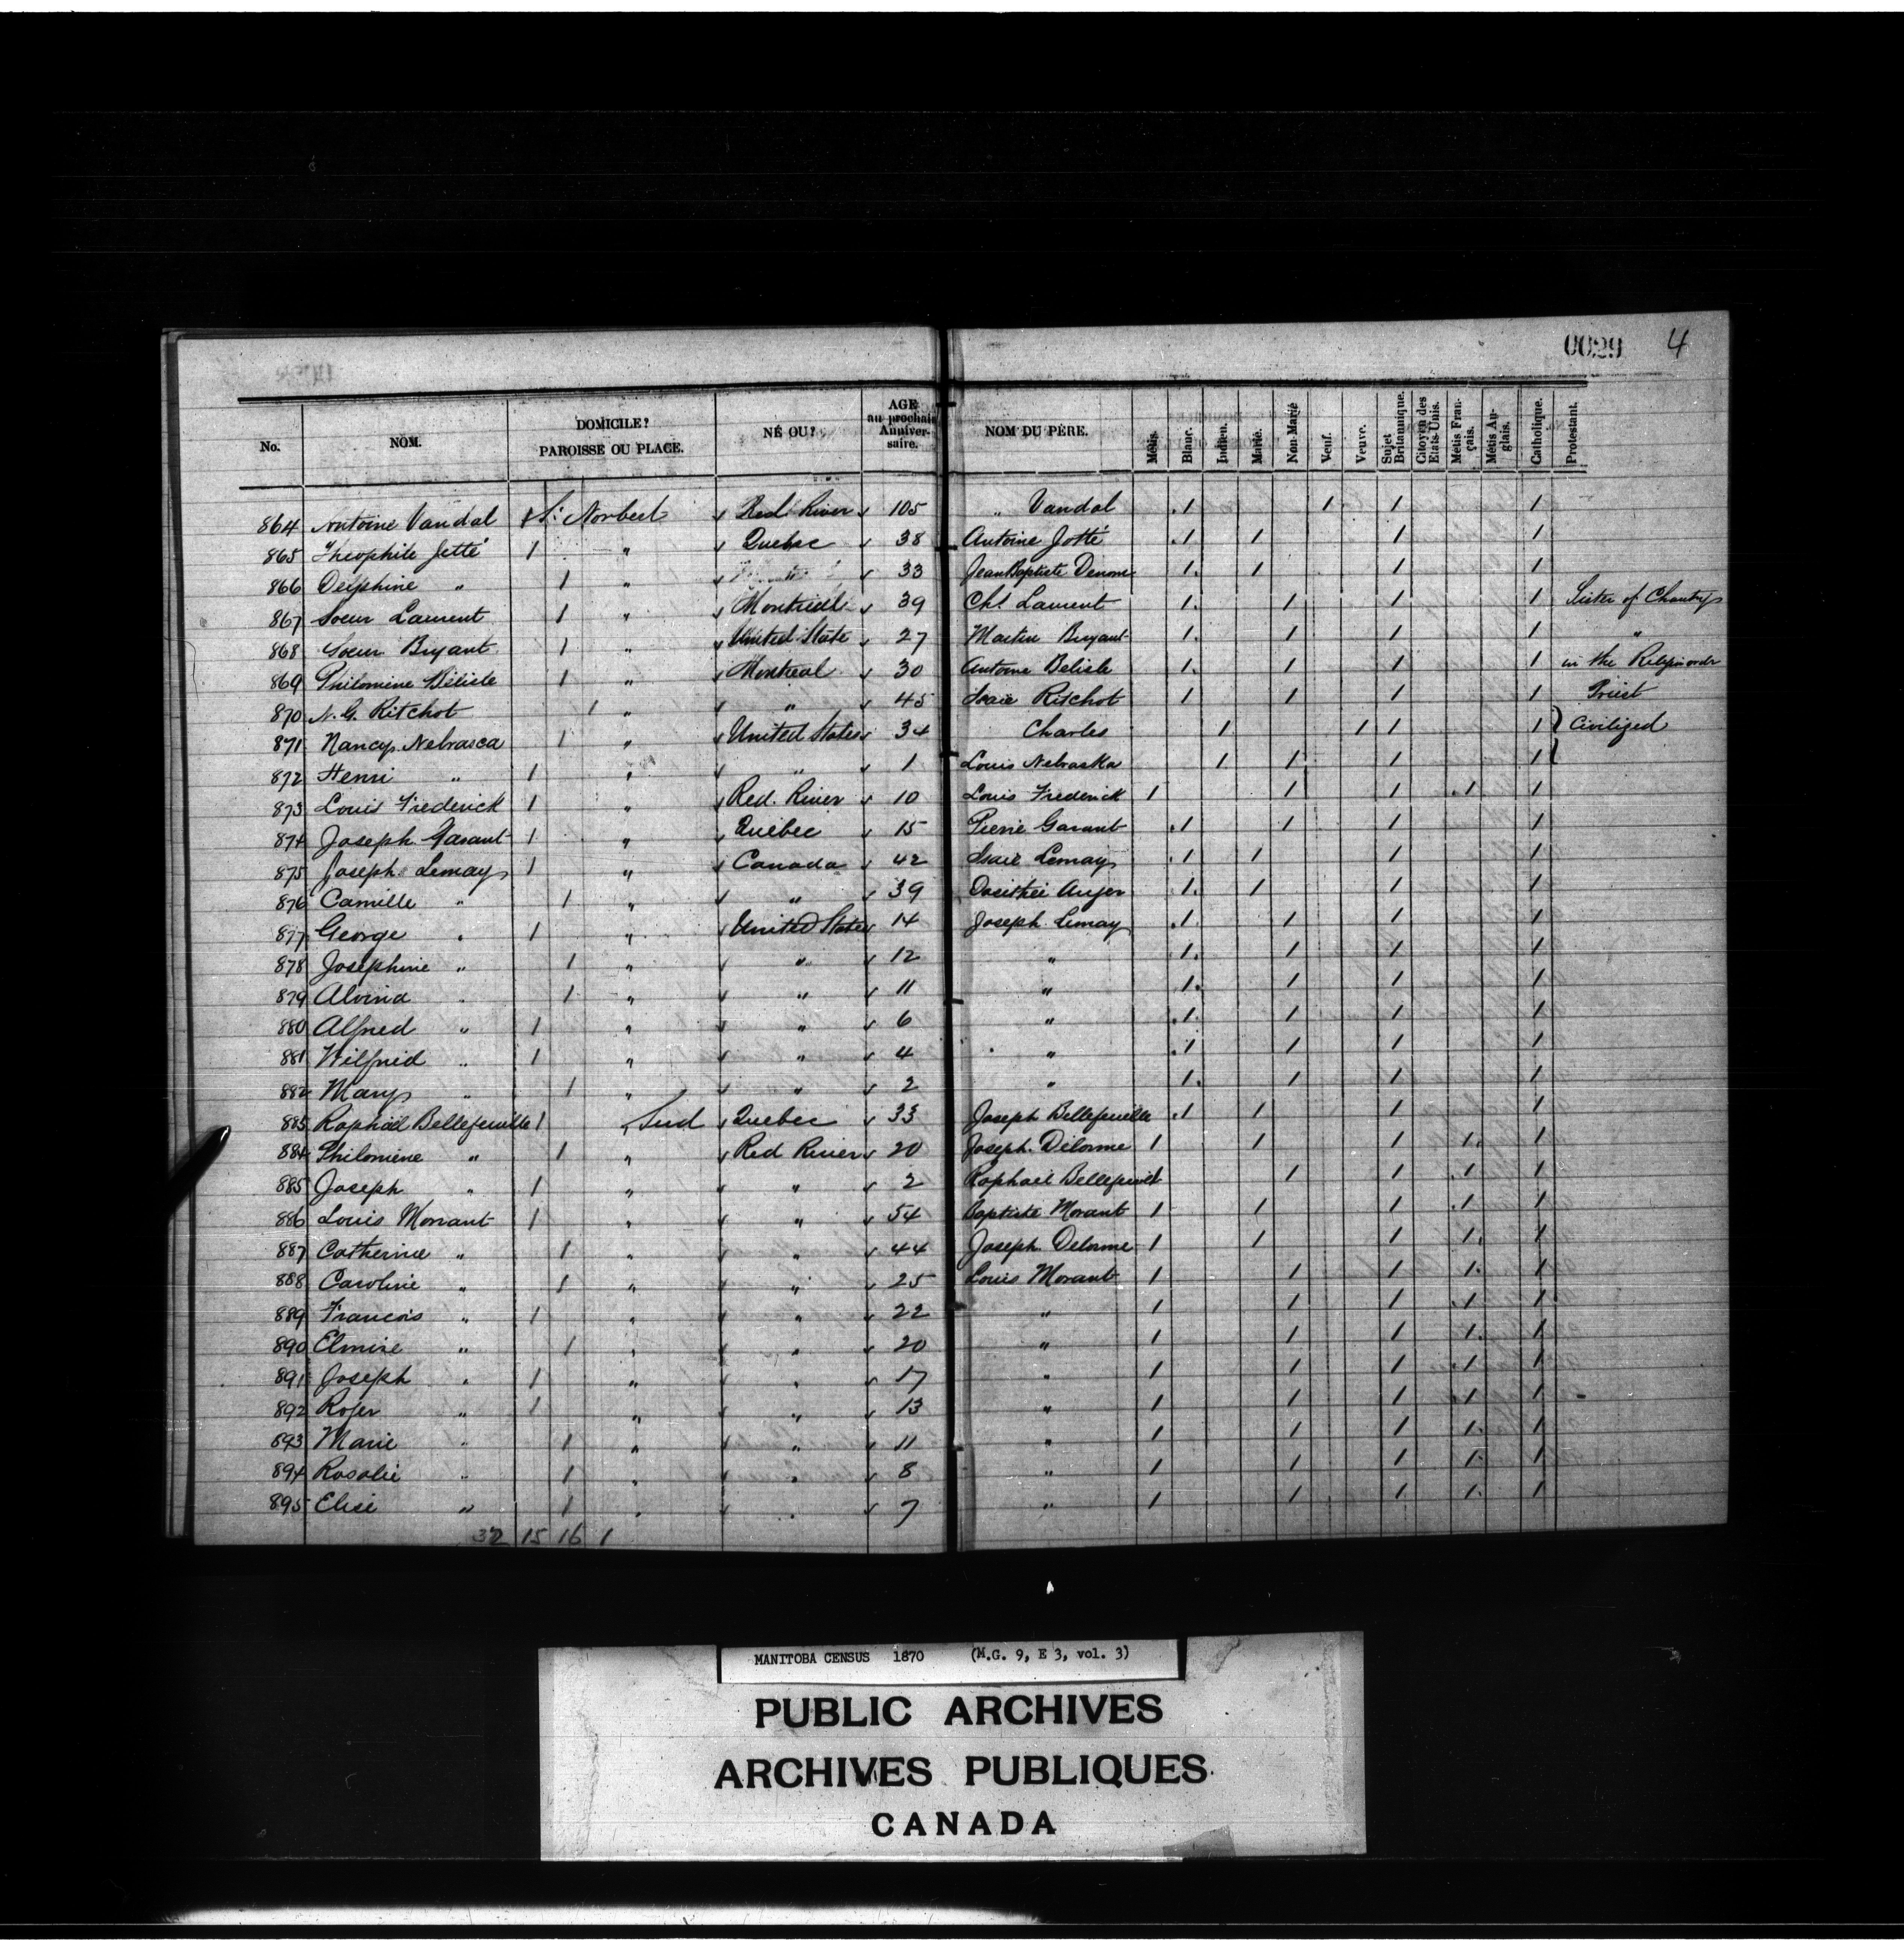 0029 4
No. NOM. DOMICILE? PAROISSE OU PLACE. NÉ OU? AGE au prochain Anniver- saire. NOM DU PÈRE. Métis. Blanc. Indien. Marié. Non-Marié Veuf. Veuve. Sujet Britannique. Citoyen des Etats-Unis. Métis Fran- çais. Métis An- glais. Catholique. Protestant.
864 Antoine Vandal 1 St. Norbert Red River 105 " Vandal 1 1 1 1
865 Theophile Jetté 1 " Quebec 38 Antoine Jotté 1 1 1 1
866 Delphine " 1 " 33 Jean Baptiste Denom 1 1 1 1
867 Soeur Laurent 1 " Montreal 39 Chs. Laurent 1 1 1 1 Sister of Charity
868 Soeur Bryant 1 " United State 27 Martin Bryant 1 1 1 1 "
869 Philomine Bélisle 1 " Montreal 30 Antoine Belisle 1 1 1 1 in the order
870 N. G. Ritchot 1 " " 45 Isaie Ritchot 1 1 1 1 Priest
871 Nancy Nebrasca 1 " United States 34 Charles 1 1 1 1 } Civilized
872 Henri " 1 " " 1 Louis Nebraska 1 1 1 1
873 Louis Frederick 1 " Red River 10 Louis Frederick 1 1 1 1 1
874 Joseph Garant 1 " Quebec 15 Pierre Garant 1 1 1 1
875 Joseph Lemay 1 " Canada 42 Isaie Lemay 1 1 1 1
876 Camille " 1 " " 39 Auger 1 1 1 1
877 George " 1 " United States 14 Joseph Lemay 1 1 1 1
878 Josephine " 1 " " 12 " 1 1 1 1
879 Alvina " 1 " " 11 " 1 1 1 1
880 Alfred " 1 " " 6 " 1 1 1 1
881 Wilfrid " 1 " " 4 " 1 1 1 1
882 Mary " 1 " " 2 " 1 1 1 1
883 Raphael Bellefeuille 1 " Sud Quebec 33 Joseph Bellefeuille 1 1 1 1
884 Philomene " 1 " Red River 20 Joseph Delorme 1 1 1 1 1
885 Joseph " 1 " " 2 Raphael 1 1 1 1 1
886 Louis Morrant 1 " " 54 Baptiste Morant 1 1 1 1 1
887 Catherine " 1 " " 44 Joseph Delorme 1 1 1 1 1
888 Caroline " 1 " " 25 Louis Morant 1 1 1 1 1
889 Francois " 1 " " 22 " 1 1 1 1 1
890 Elmire " 1 " " 20 " 1 1 1 1 1
891 Joseph " 1 " " 17 " 1 1 1 1 1
892 Roger " 1 " " 13 " 1 1 1 1 1
893 Marie " 1 " " 11 " 1 1 1 1 1
894 Rosalie " 1 " " 8 " 1 1 1 1 1
895 Elise " 1 " " 7 " 1 1 1 1 1
32 15 16 1
MANITOBA CENSUS 1870 (M.G. 9, E 3, vol. 3)
PUBLIC ARCHIVES
ARCHIVES PUBLIQUES
CANADA